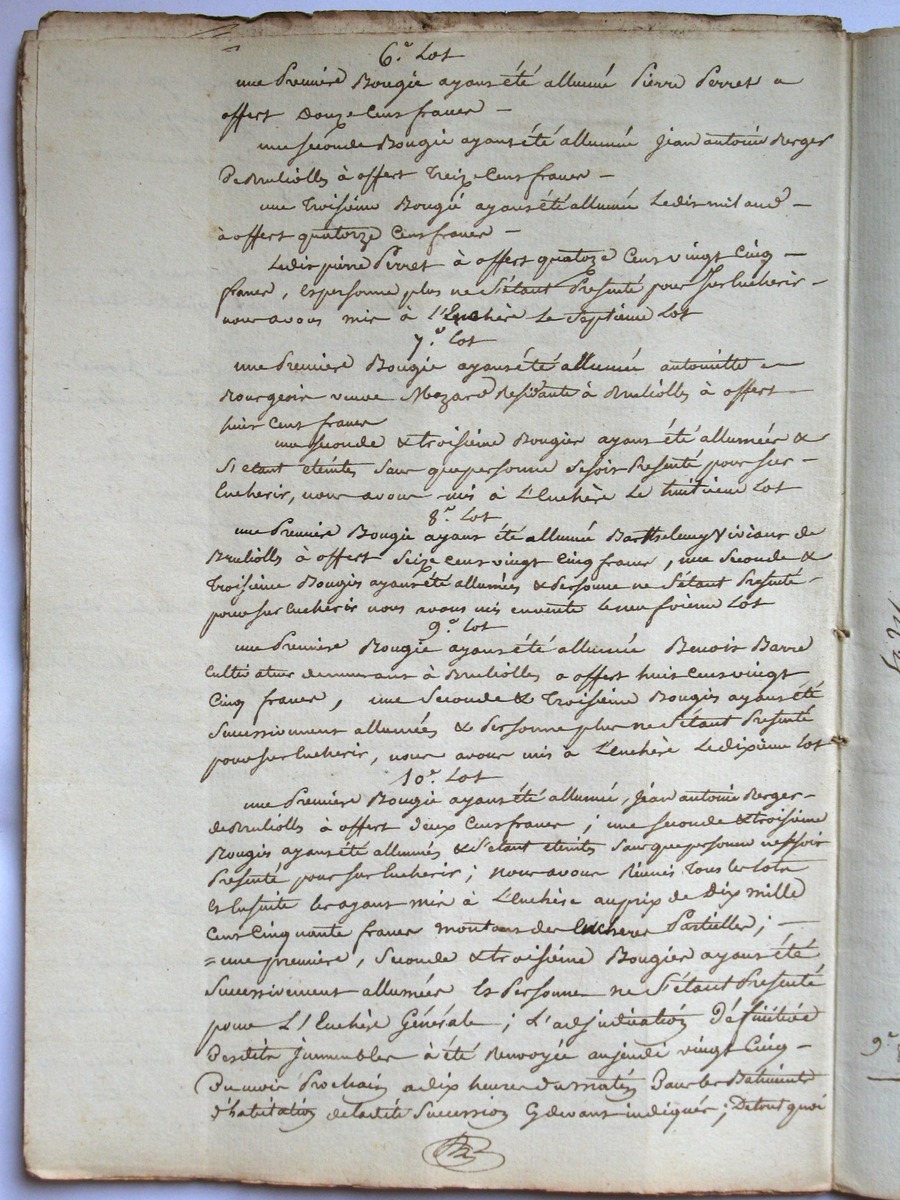 6.e Lot
une Premiere Bougie ayant été allumé Pierre Perret a
offert douze Cens francs —
une seconde Bougie ayant été allumée Jean antoine Berger
De Brulioles à offert treize Cens francs —
une troisieme Bougie ayant été allumée Ledit —
à offert quatorze Cens francs —
Ledit pierre Perret à offert quatoze Cens vingt Cinq —
francs, et personne plus ne S'étant Présenté pour Surencherir —
nous avons mis à L'Enchère Le Septieme Lot
7.e Lot
une Premiere Bougie ayant été allumée antoinette
Bourgeois veuve Mozard Residante à Brulioles à offert
huit Cens francs
une seconde & troisieme Bougies ayant été allumées &
S'etant eteintes Sans que personne se soit Présenté pour Sur-
Encherir, nous avons mis à L'Enchère Le huitieme Lot
8.e Lot
une Premiere Bougie ayant été allumé Barthelemy Viviant de
Brulioles à offert Seize cens vingt Cinq francs, une Seconde &
troisieme Bougies ayant été allumées & Personne ne S'étant Présenté
pour surEncherir nous avons mis en vente le neufvieme Lot
9.e lot
une Premiere Bougie ayant été allumée Benoit Barre
Cultivateur demeurant à Brulioles a offert huit Cens vingt
Cinq francs, une Seconde & troisieme Bougies ayant été
Successivement allumées & Personne plus ne S'étant Présenté
pour surEncherir, nous avons mis à L'Enchère Le dixieme Lot
10.e Lot
une Premiere Bougie ayant été allumée, Jean antoine Berger
de Brulioles à offert deux Cens francs; une seconde & troisieme
Bougies ayant été allumées & S'etant eteints Sans que personne ne ssoit
Présenté pour surEncherir; nous avons Réunis tous les lots
et Ensuite les ayant mis à L'Enchère au prix de Dix mille
Cent Cinquante francs montant des Encheres Partielles; —
= une premiere, Seconde & troisieme Bougies ayant été
Successivement allumées et Personne ne S'étant Présenté
pour L'Enchère Générale; L'adjudication Définitive
Desdits immeubles à été Renvoyée au jeudi vingt Cinq —
Du mois Prochain a dix heures du matin Dans les Batiments
d'habitation de ladite Succession Cydevant indiqués; De tout quoi
9.e